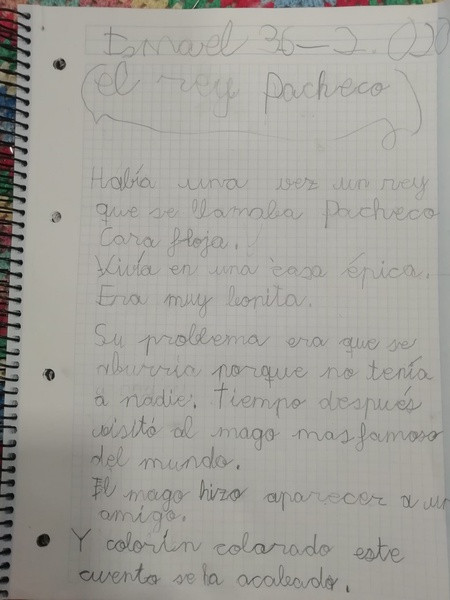 Ismael 36-2.020
(el rey Pacheco)
Había una vez un rey
que se llamaba Pacheco
Cara floja.
Vivía en una casa épica.
Era muy bonita.
Su problema era que se
aburria porque no tenía
a nadie. Tiempo después
visitó al mago mas famoso
del mundo.
El mago hizo aparecer a un
amigo.
Y colorín colarado este
cuento se ha acabado.